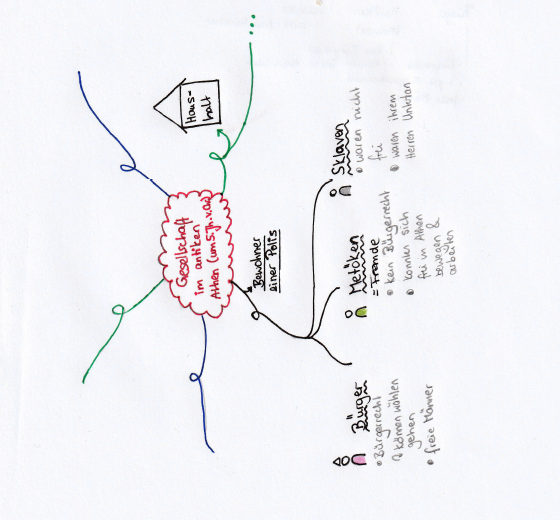 Gesellschaft
im antiken
Athen (um 5. Jh. v. Chr.)
Haus-
halt
...
Bewohner
einer Polis
Bürger
• Bürgerrecht
können wählen
gehen
• freie Männer
Metöken
= Fremde
• kein Bürgerrecht
• konnten sich
frei in Athen
bewegen &
arbeiten
Sklaven
• waren nicht
frei
• waren ihrem
Herren Untertan